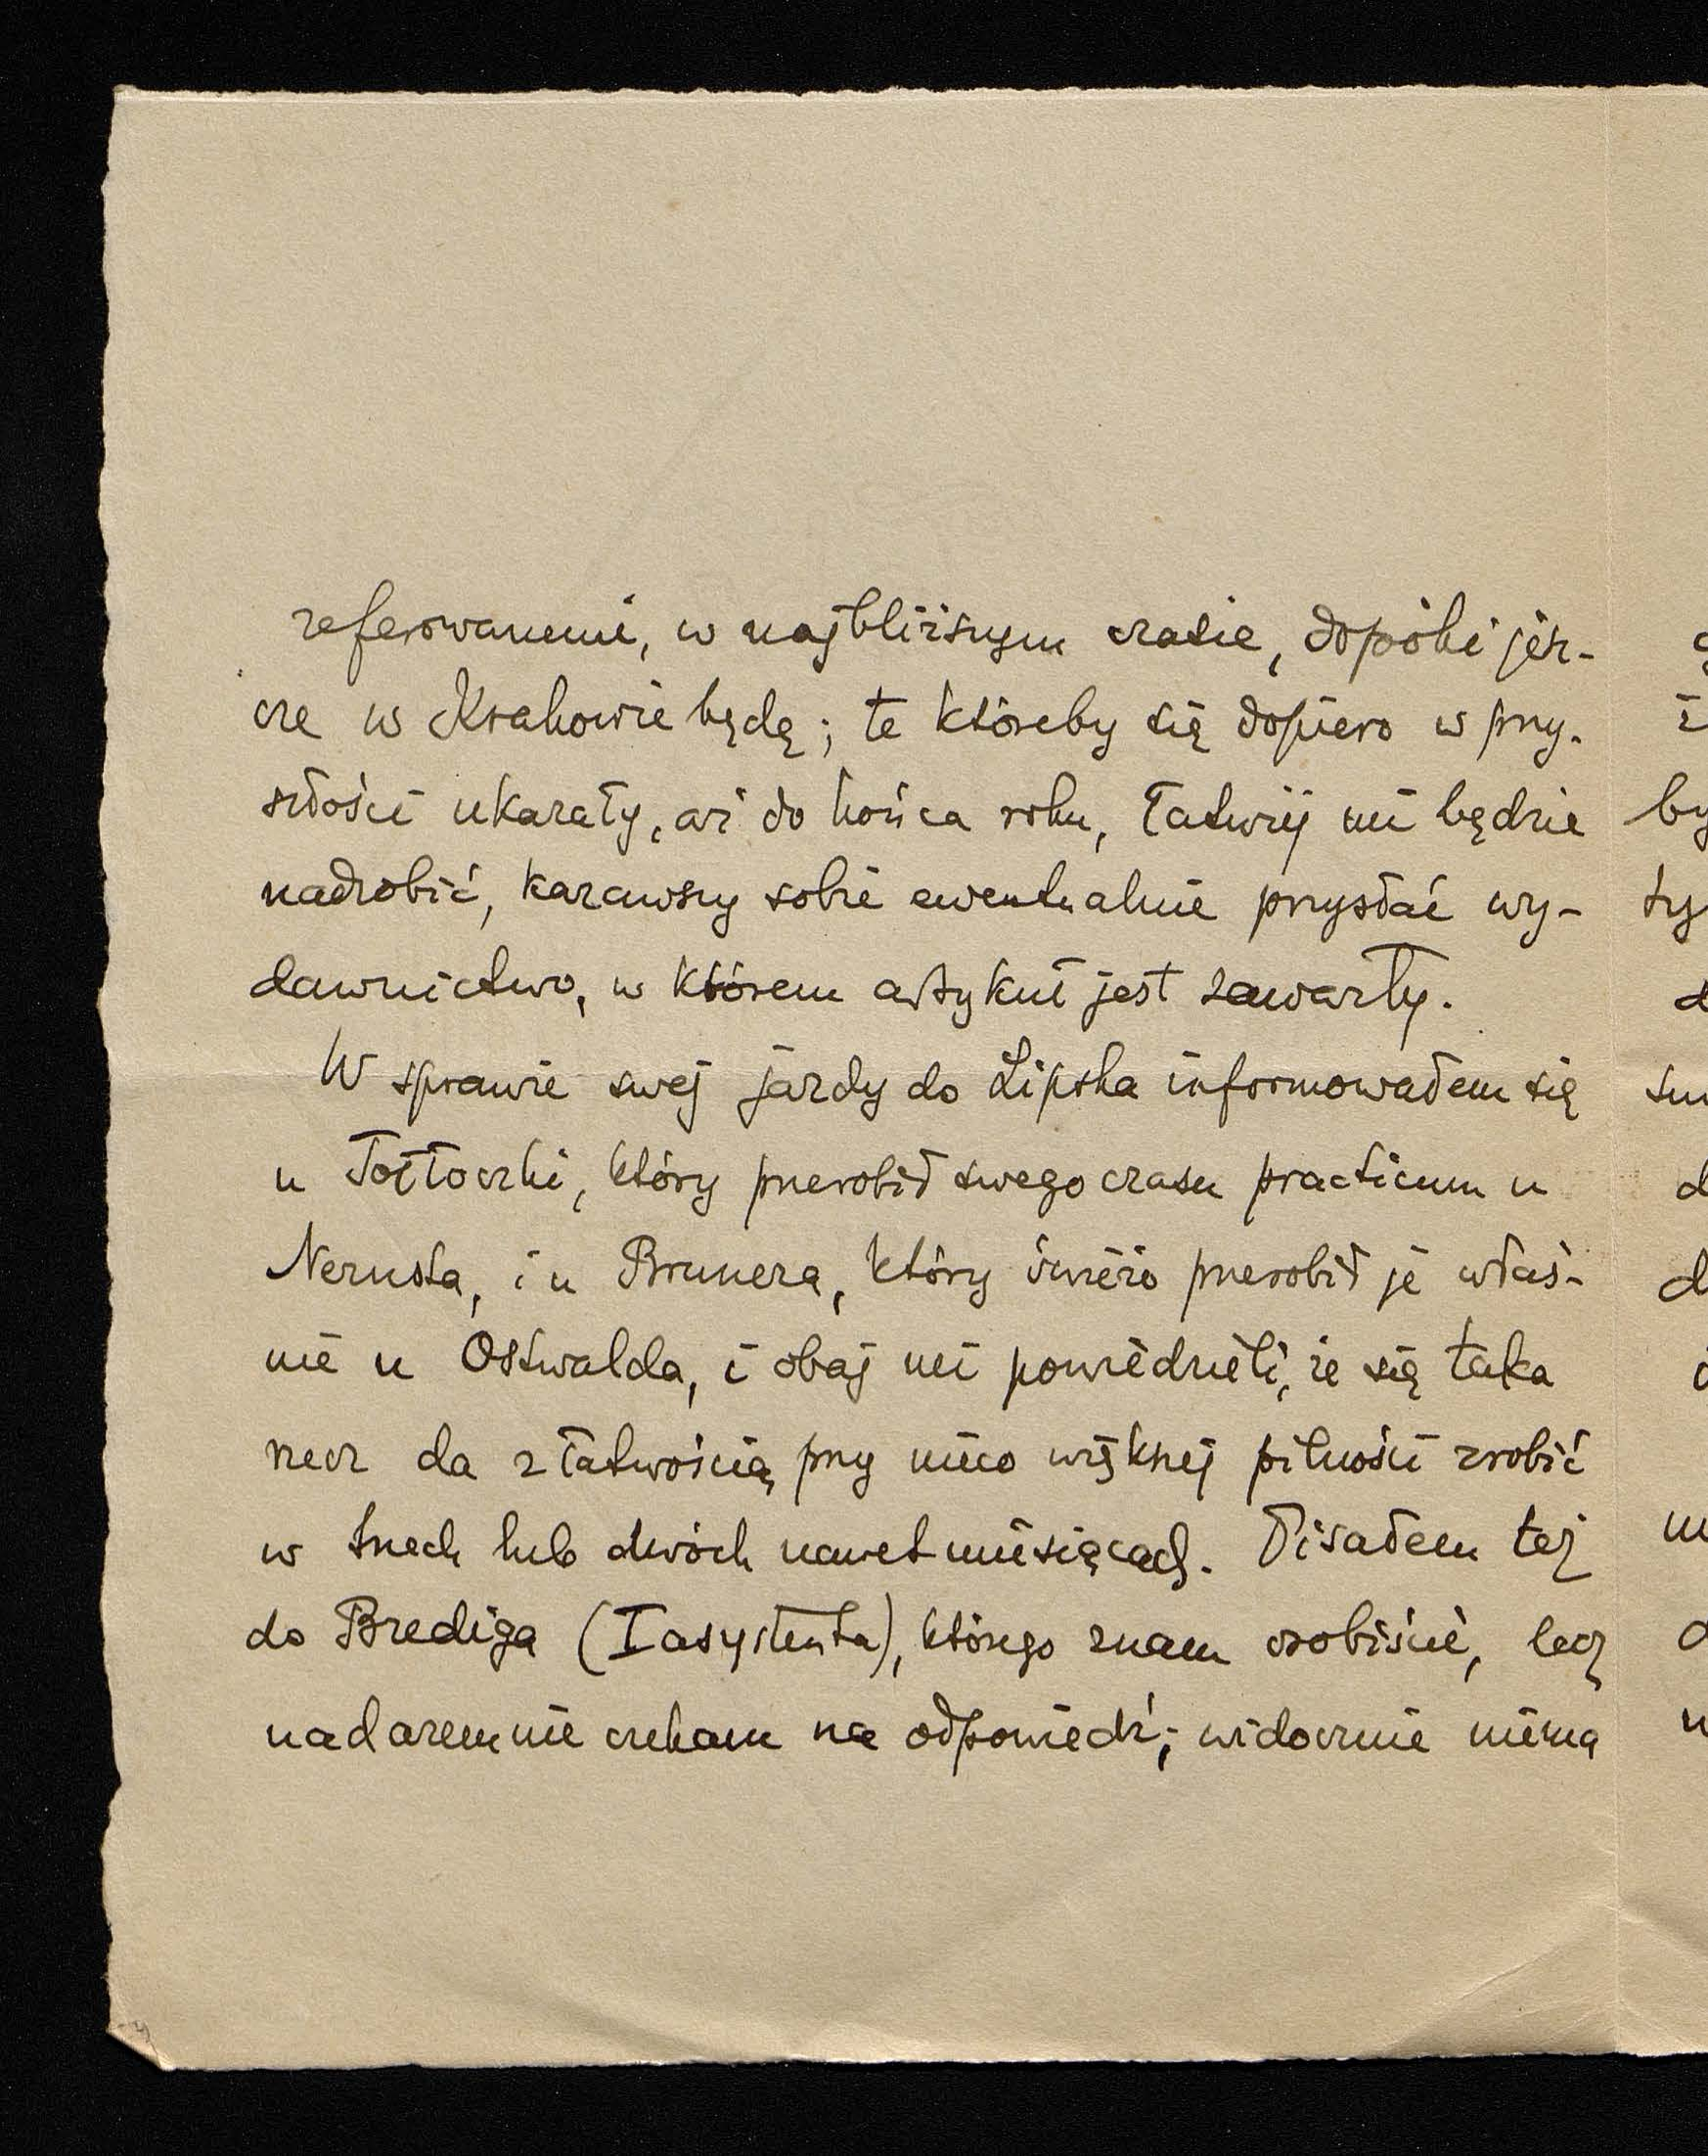 referowanemi, w najbliższym czasie, dopóki jesz-
cze w Krakowie będę; te któreby się dopiero w przy-
szłości ukazały, aż do końca roku, łatwiej mi będzie
nadrobić, kazawszy sobie ewentualnie przysłać wy-
dawnictwo, w którem artykuł jest zawarty.
W sprawie swej jazdy do Lipska informowałem się
u Tołłoczki, który przerobił swego czasu practicum u
Nernsta, i u Brunera, który świeżo przerobił je właś-
nie u Ostwalda, i obaj mi powiedzieli, że się taka
rzecz da z łatwością przy nieco większej pilności zrobić
w trzech lub dwóch nawet miesiącach. Pisałem też
do Brediga (I asystenta), którego znam osobiście, lecz
nadaremnie czekam na odpowiedź; widocznie niema